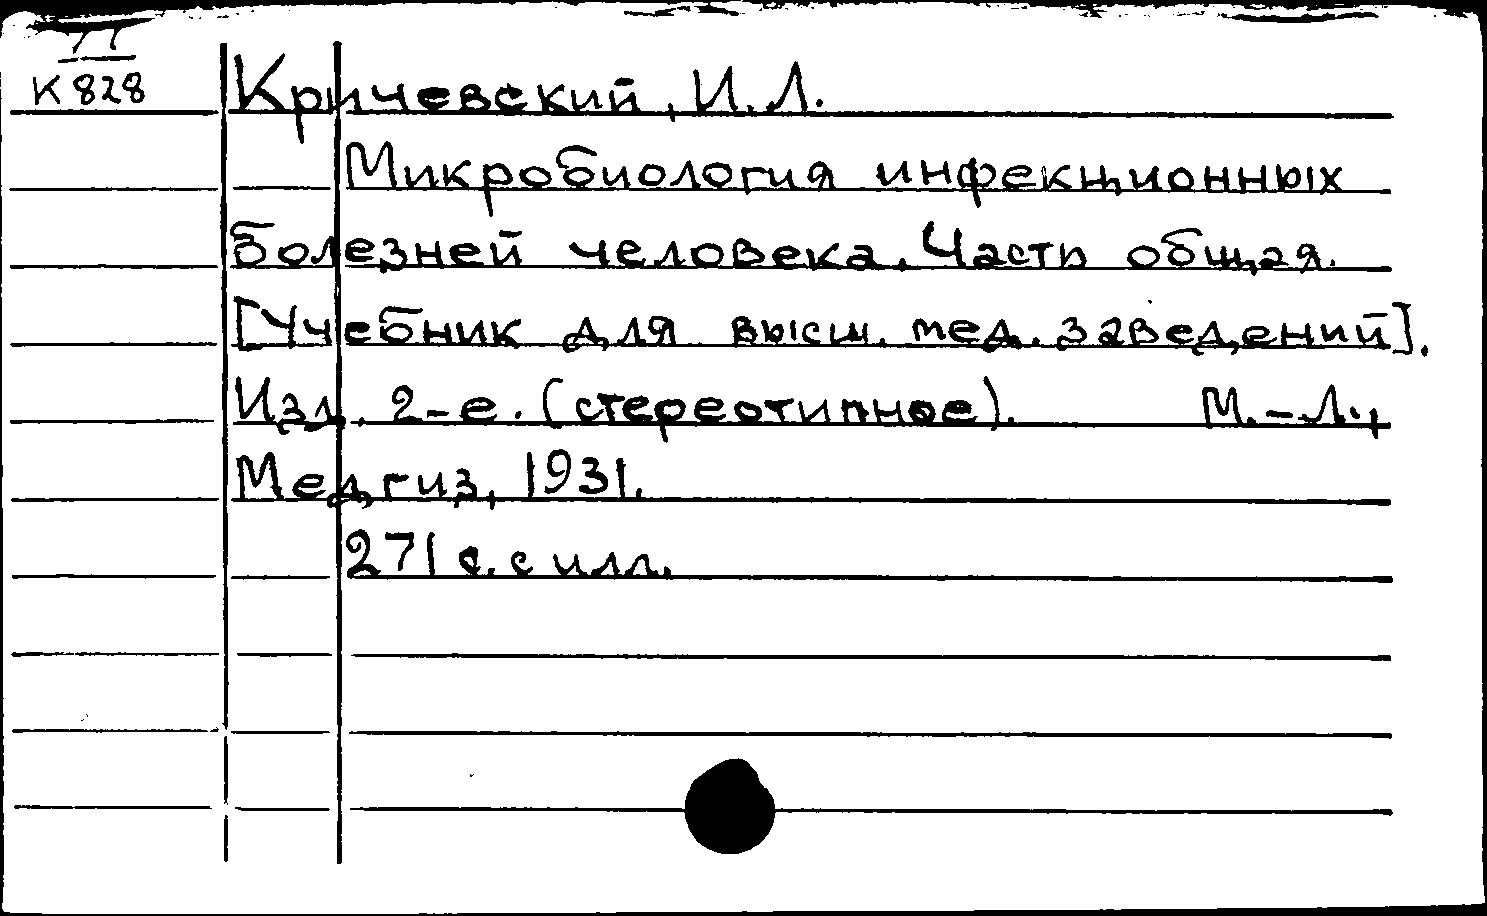 К 828
Кричевский, И. Л.
Микробиология инфекционных
болезней человека. Часть общая.
[Учебник для высш. мед. заведений].
Изд. 2-е. (стереотипное). М.-Л.,
Медгиз, 1931.
271 с. с илл.